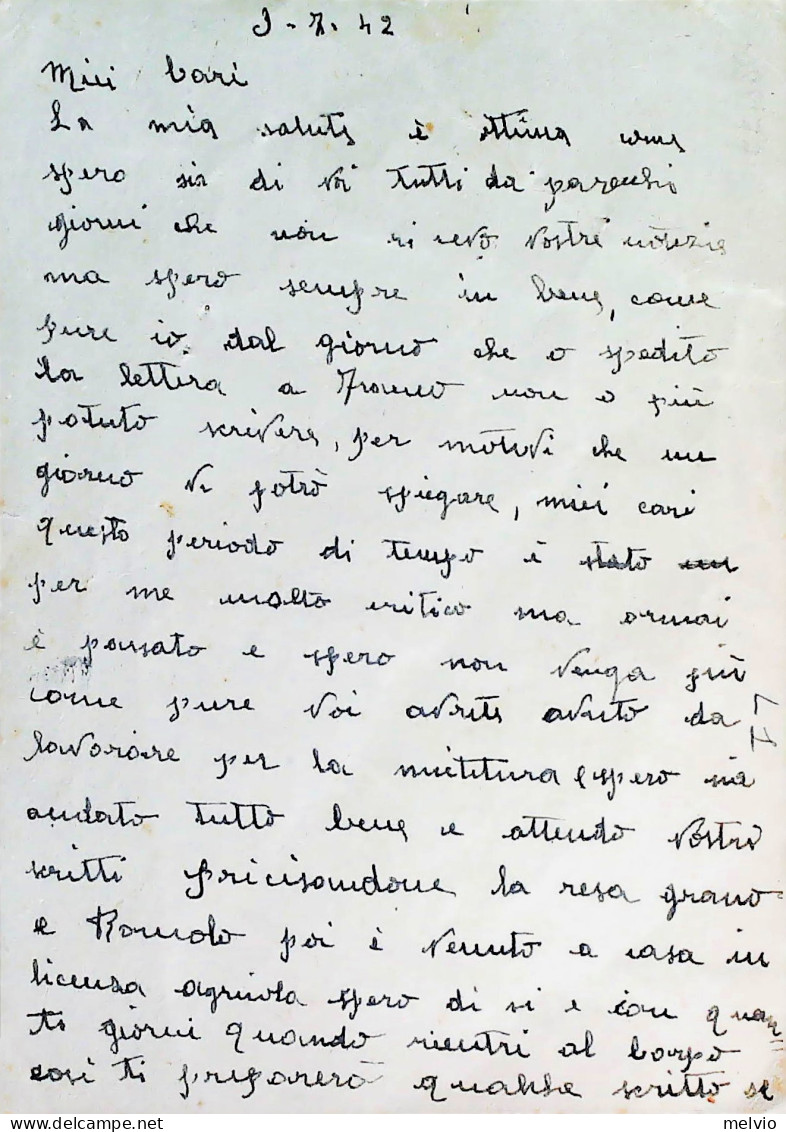 3-7-42
Miei Cari
La mia salute è ottima come
spero sia di voi tutti da parecchi
giorni che non ricevo vostre notizie
ma spero sempre in bene, come
pure io dal giorno che o spedito
la lettera a non o più
potuto scrivere, per motivi che un
giorno vi potrò spiegare, miei cari
questo periodo di tempo è stato un
per me molto critico ma ormai
è passato e spero non venga più
come pure voi avrete avuto da
lavorare per la mititura e spero sia
andato tutto bene e attendo vostri
scritti pricisandone la resa grano
e Romolo poi è venuto a casa in
licenza agricola spero di si e con quan=
ti giorni quando rientri al corpo
cosi ti preparerà qualche scritto se
melvio